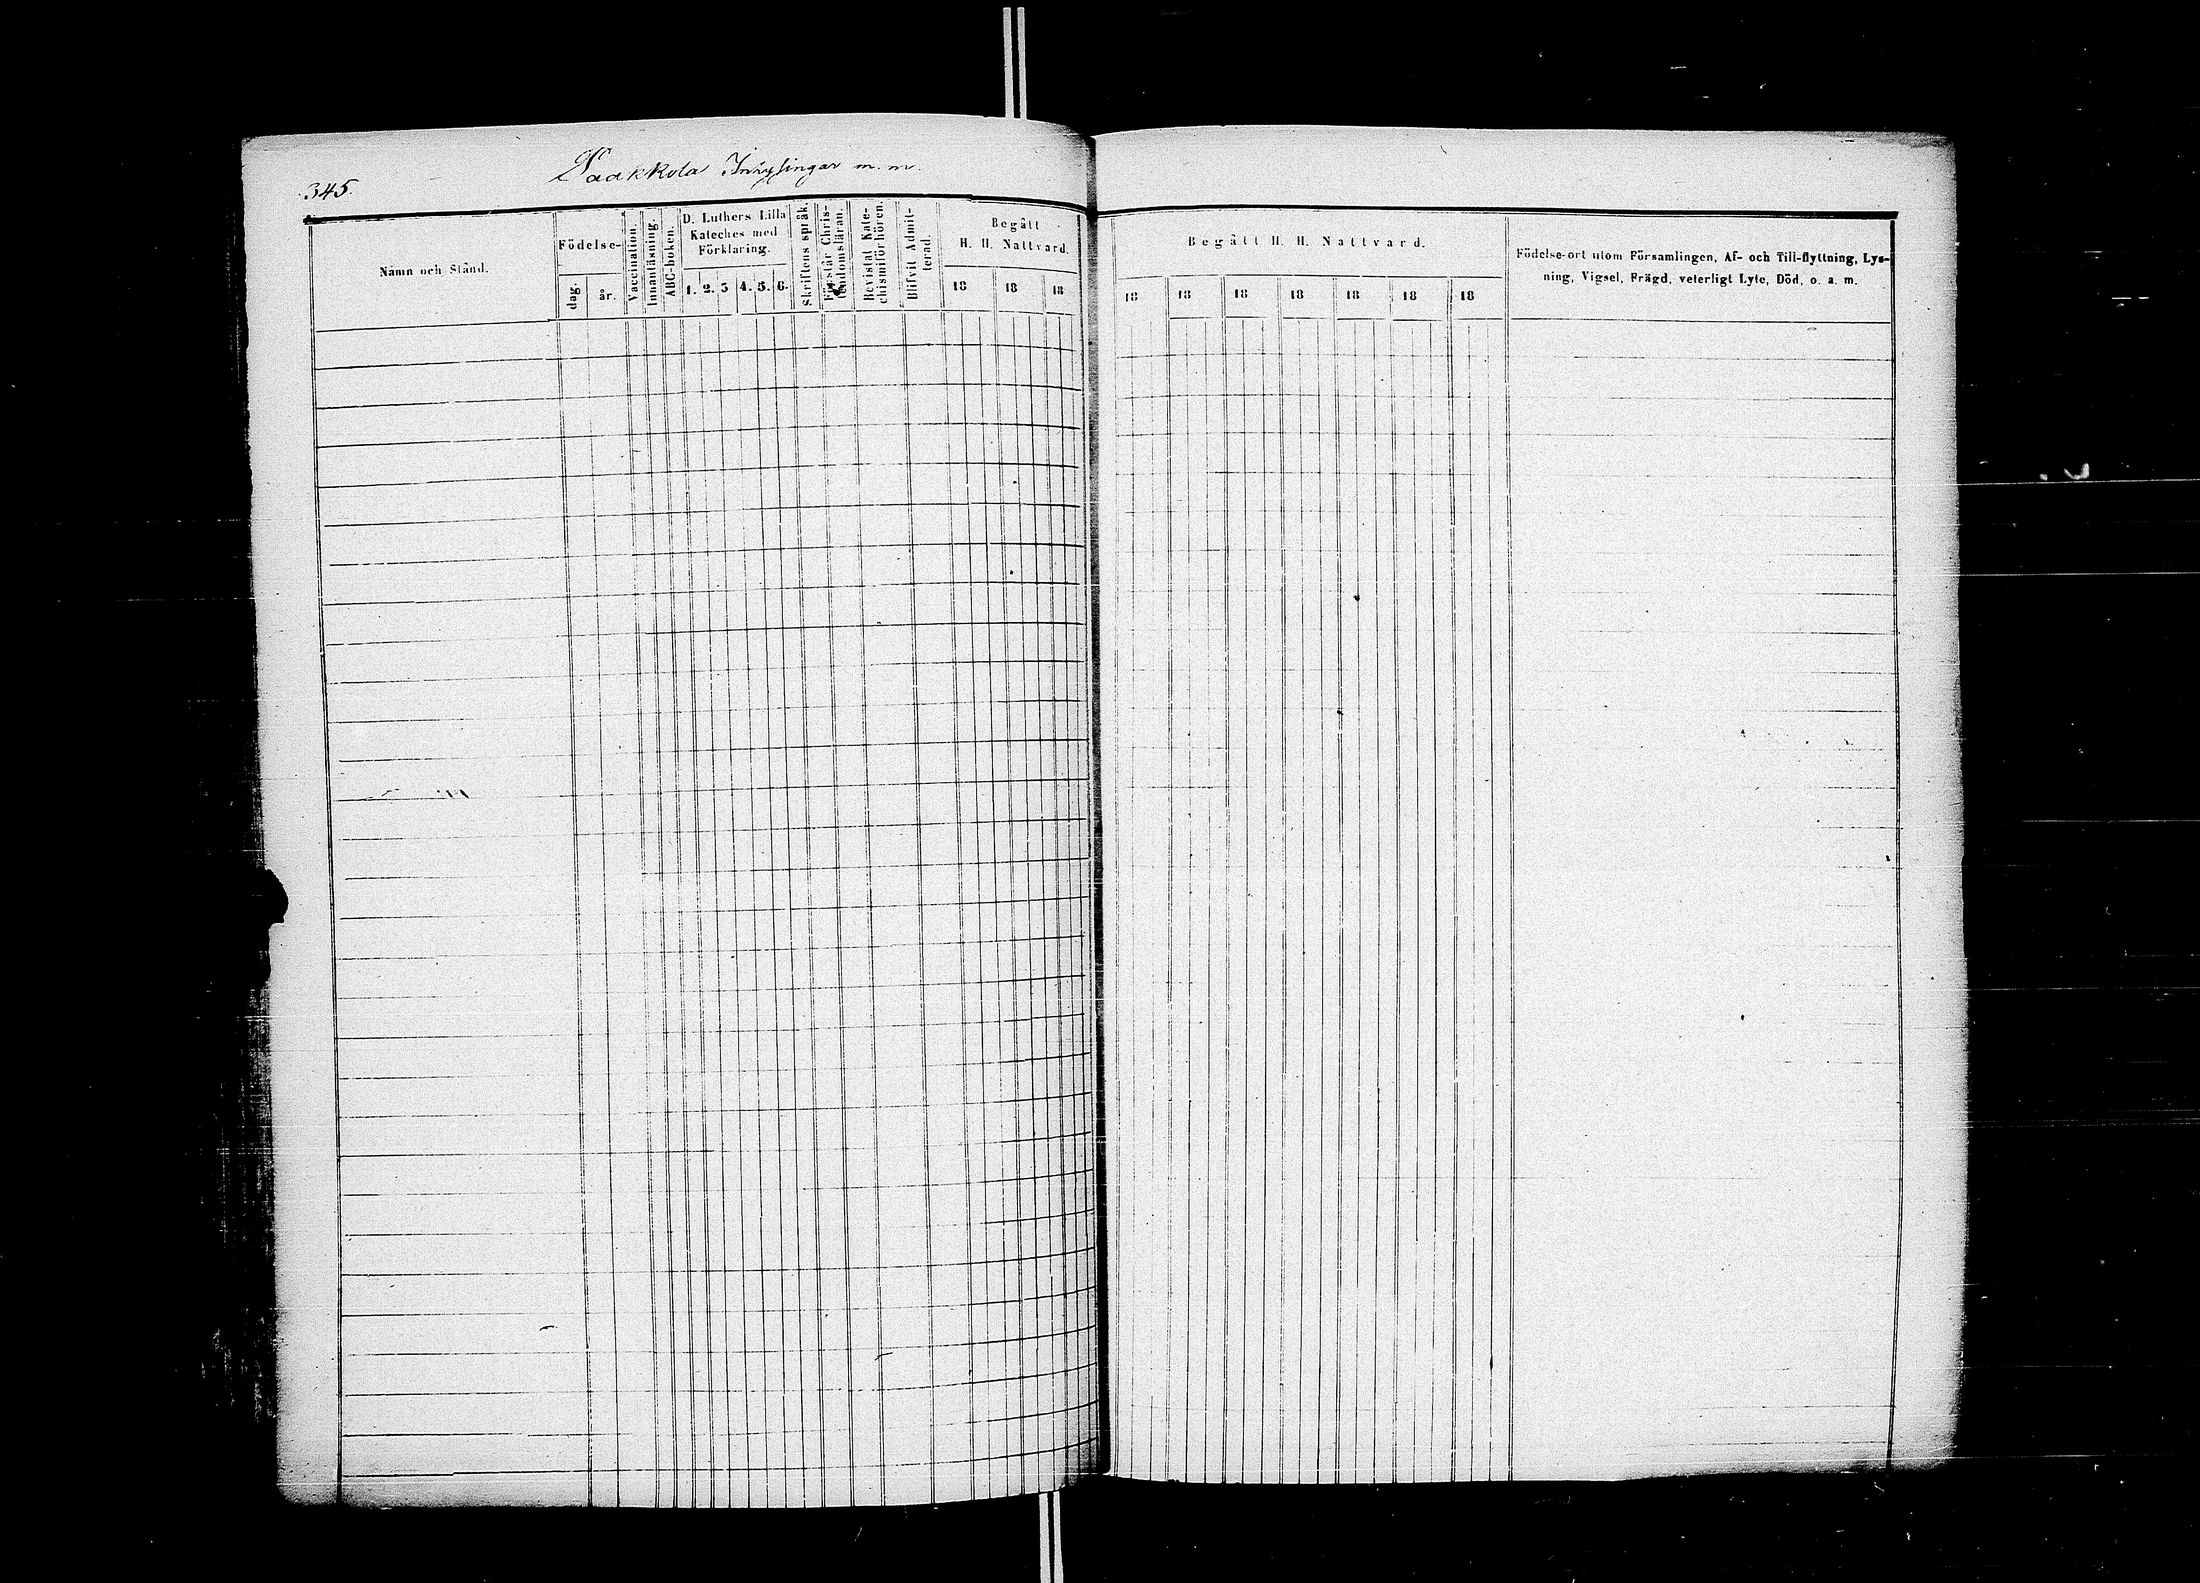 345.
Paakkola Inhysingar m. m.
Namn och Stånd.
Födelse-
dag.
år.
Vaccination.
Innanläsning.
ABC-boken.
D. Luthers Lilla
Kateches med
Förklaring.
1. 2. 3 4. 5. 6.
Skriftens språk.
Förstår Chris-
tendomsläran.
Bevistat Kate-
chismiförhören.
Blifvit Admit-
terad.
Begått
H. H. Nattvard.
18 18 18
Begått H. H. Nattvard.
18 18 18 18 18 18 18
Födelse-ort utom Församlingen, Af- och Till-flyttning, Lys-
ning, Vigsel, Frägd, veterligt Lyte, Död, o. a. m.